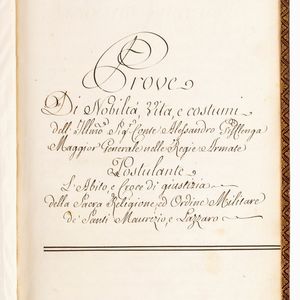 Prove
Di Nobiltà, Vita, e costumi
dell' Illmo Sigr Conte Alessandro Gifflenga
Maggior Generale nelle Regie Armate
Postulante
L'Abito, e Croce di giustizia
della Sacra Religione, ed Ordine Militare
de' Santi Maurizio, e Lazzaro